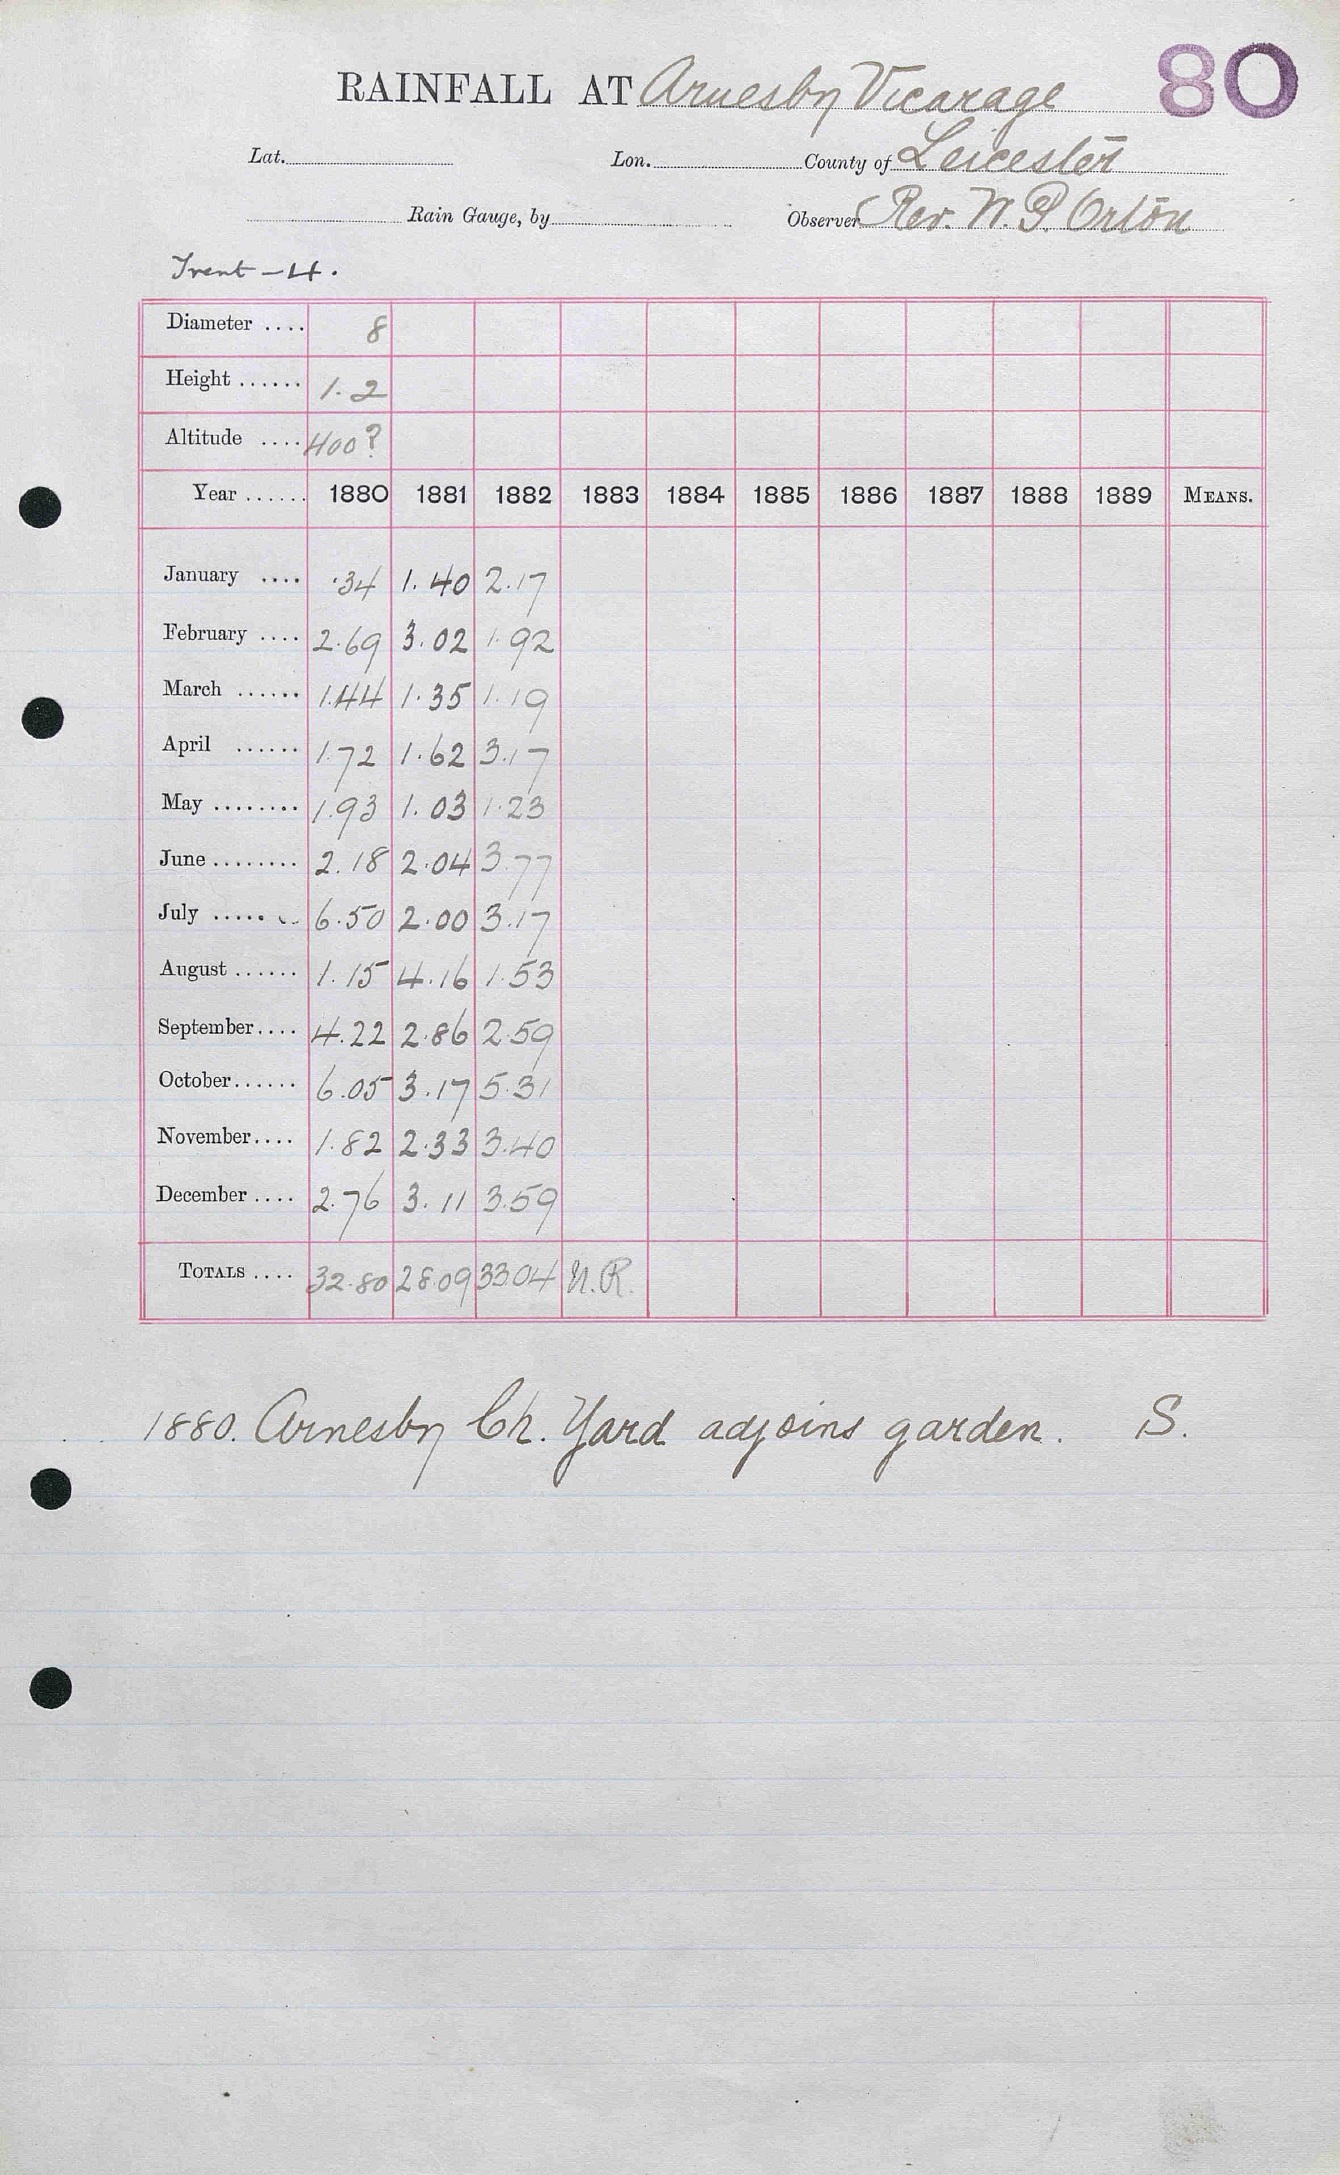 80
RAINFALL AT Arnesby Vicarage
Lat. Lon. County of Leicester
Rain Gauge, by Observer Rev. W. P. Orton
Trent - 4.
Diameter .... 8
Height ...... 1.2
Altitude .... 400?
Year ...... 1880 1881 1882 1883 1884 1885 1886 1887 1888 1889 MEANS.
January .... .34 1.40 2.17
February .... 2.69 3.02 1.92
March ...... 1.44 1.35 1.19
April ...... 1.72 1.62 3.17
May ........ 1.93 1.03 1.23
June ........ 2.18 2.04 3.77
July ..... 6.50 2.00 3.17
August ...... 1.15 4.16 1.53
September .... 4.22 2.86 2.59
October ...... 6.05 3.17 5.31
November .... 1.82 2.33 3.40
December .... 2.76 3.11 3.59
TOTALS .... 32.80 28.09 33.04 N.R.
1880. Arnesby Ch. Yard adjoins garden. S.